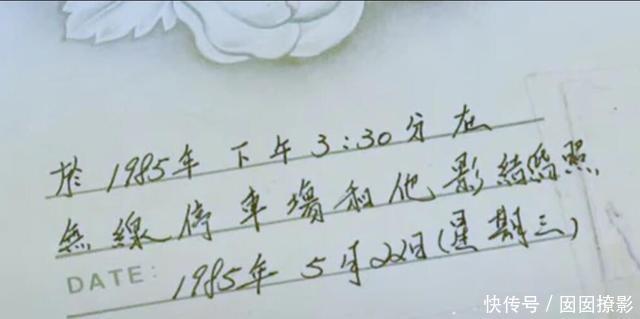 於1985年下午3:30分在
無線停車場和他影結婚照
DATE: 1985年5月22日(星期三)
快传号／囡囡撩影